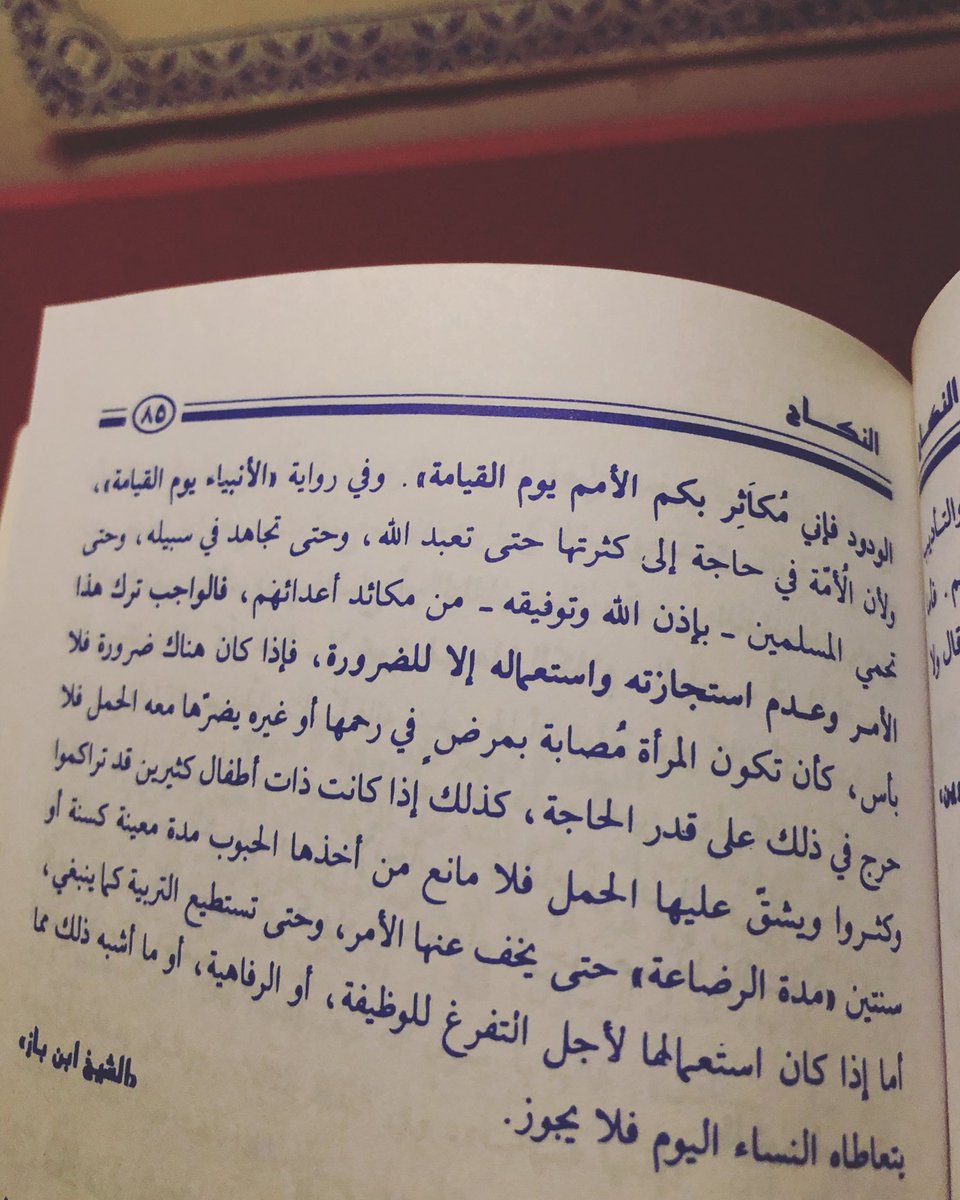 النكـــاح
٨٥
الودود فإني مُكاَثِر بكم الأمم يوم القيامة». وفي رواية «الأنبياء يوم القيامة»،
ولأن الُأمّة في حاجة إلى كثرتها حتى تعبد الله، وحتى تجاهد في سبيله، وحتى
تحمي المسلمين ـ بإذن الله وتوفيقه ـ من مكائد أعدائهم، فالواجب ترك هذا
الأمر وعـدم استجازته واستعماله إلا للضرورة، فإذا كان هناك ضرورة فلا
بأس، كأن تكون المرأة مُصابة بمرضٍ في رحمها أو غيره يضرّها معه الحمل فلا
حرج في ذلك على قدر الحاجة، كذلك إذا كانت ذات أطفال كثيرين قد تراكموا
وكثـروا ويشقّ عليها الحمل فلا مانع من أخذها الحبوب مدة معينة كسنة أو
سنتين «مدة الرضاعة» حتى يخف عنها الأمر، وحتى تستطيع التربية كما ينبغي،
أما إذا كان استعمالها لأجل التفرغ للوظيفة، أو الرفاهية، أو ما أشبه ذلك مما
يتعاطاه النساء اليوم فلا يجوز.
«الشيخ ابن باز»
النكـ
والتأديب
قال ولا